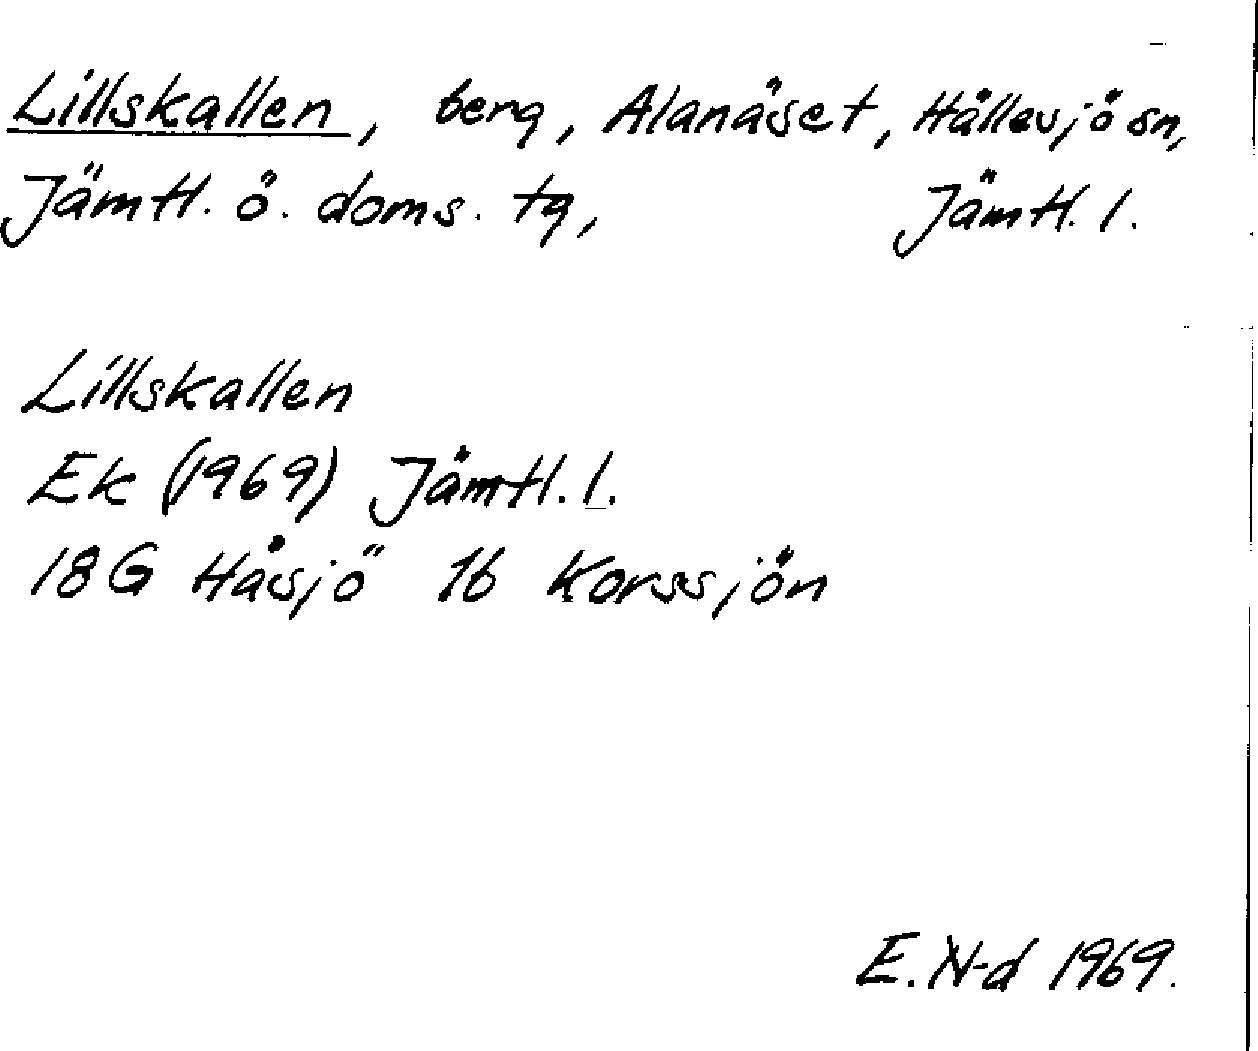 Lillskallen, berg, Alanäset, Hällesjö sn,
Jämtl. ö. doms. tg, Jämtl. l.
Lillskallen
Ek (1969) Jämtl. l.
18G Håsjö 1b Korssjön
E. N-d 1969.